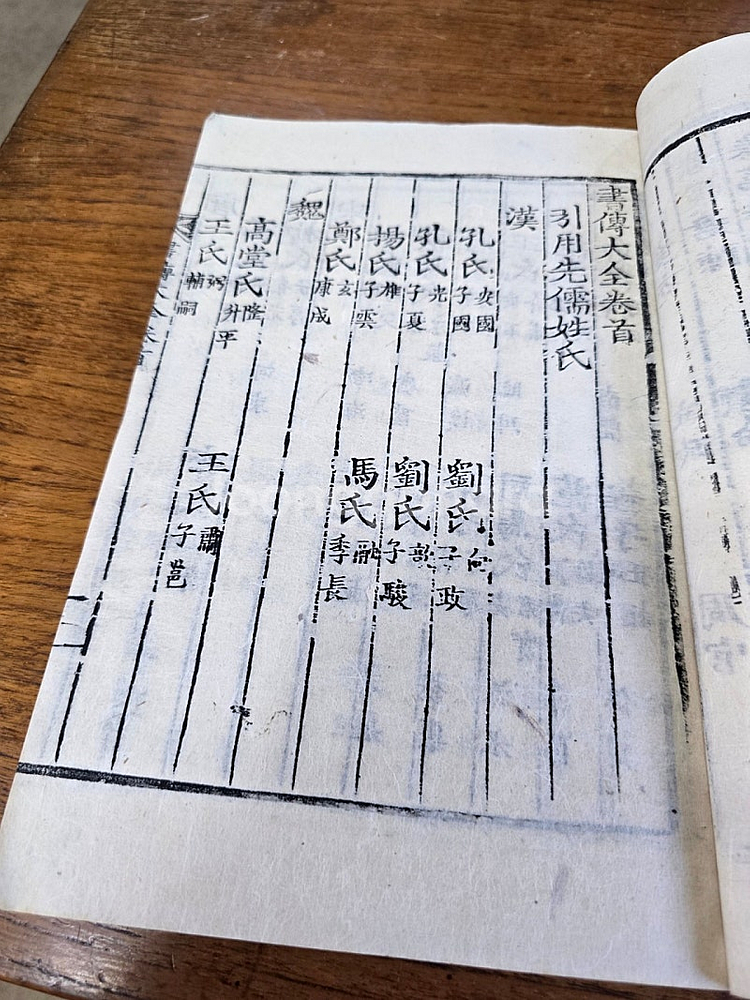 書傳大全卷首
引用先儒姓氏
漢
孔氏安國子國 劉氏向子政
孔氏光子夏 劉氏歆子駿
揚氏雄子雲 馬氏融季長
鄭氏玄康成
魏
高堂氏隆升平 王氏肅子邕
王氏弼輔嗣
書傳大全卷首